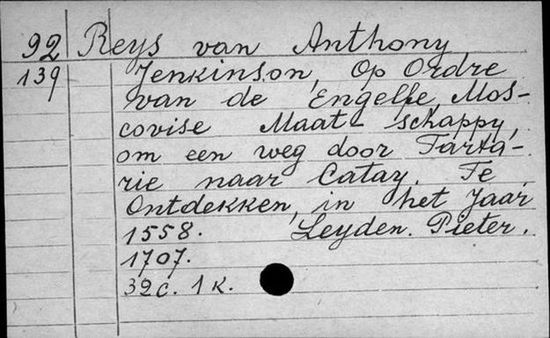 92 Reys van Anthony
139 Jenkinson, Op Ordre
van de Engelfe, Mos-
covise Maat-schappy,
om een weg door Tarta-
rie naar Catay. Te
Ontdekken, in het Jaar
1558. Leyden. Pieter.
1707.
32c. 1 K.